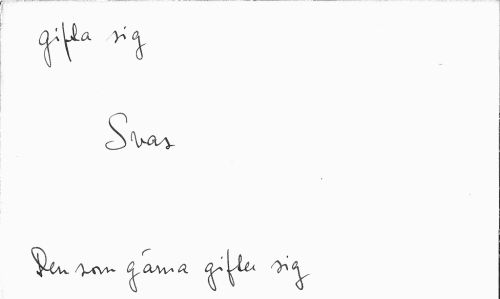 gifta sig
Svas
Den som gärna gifter sig